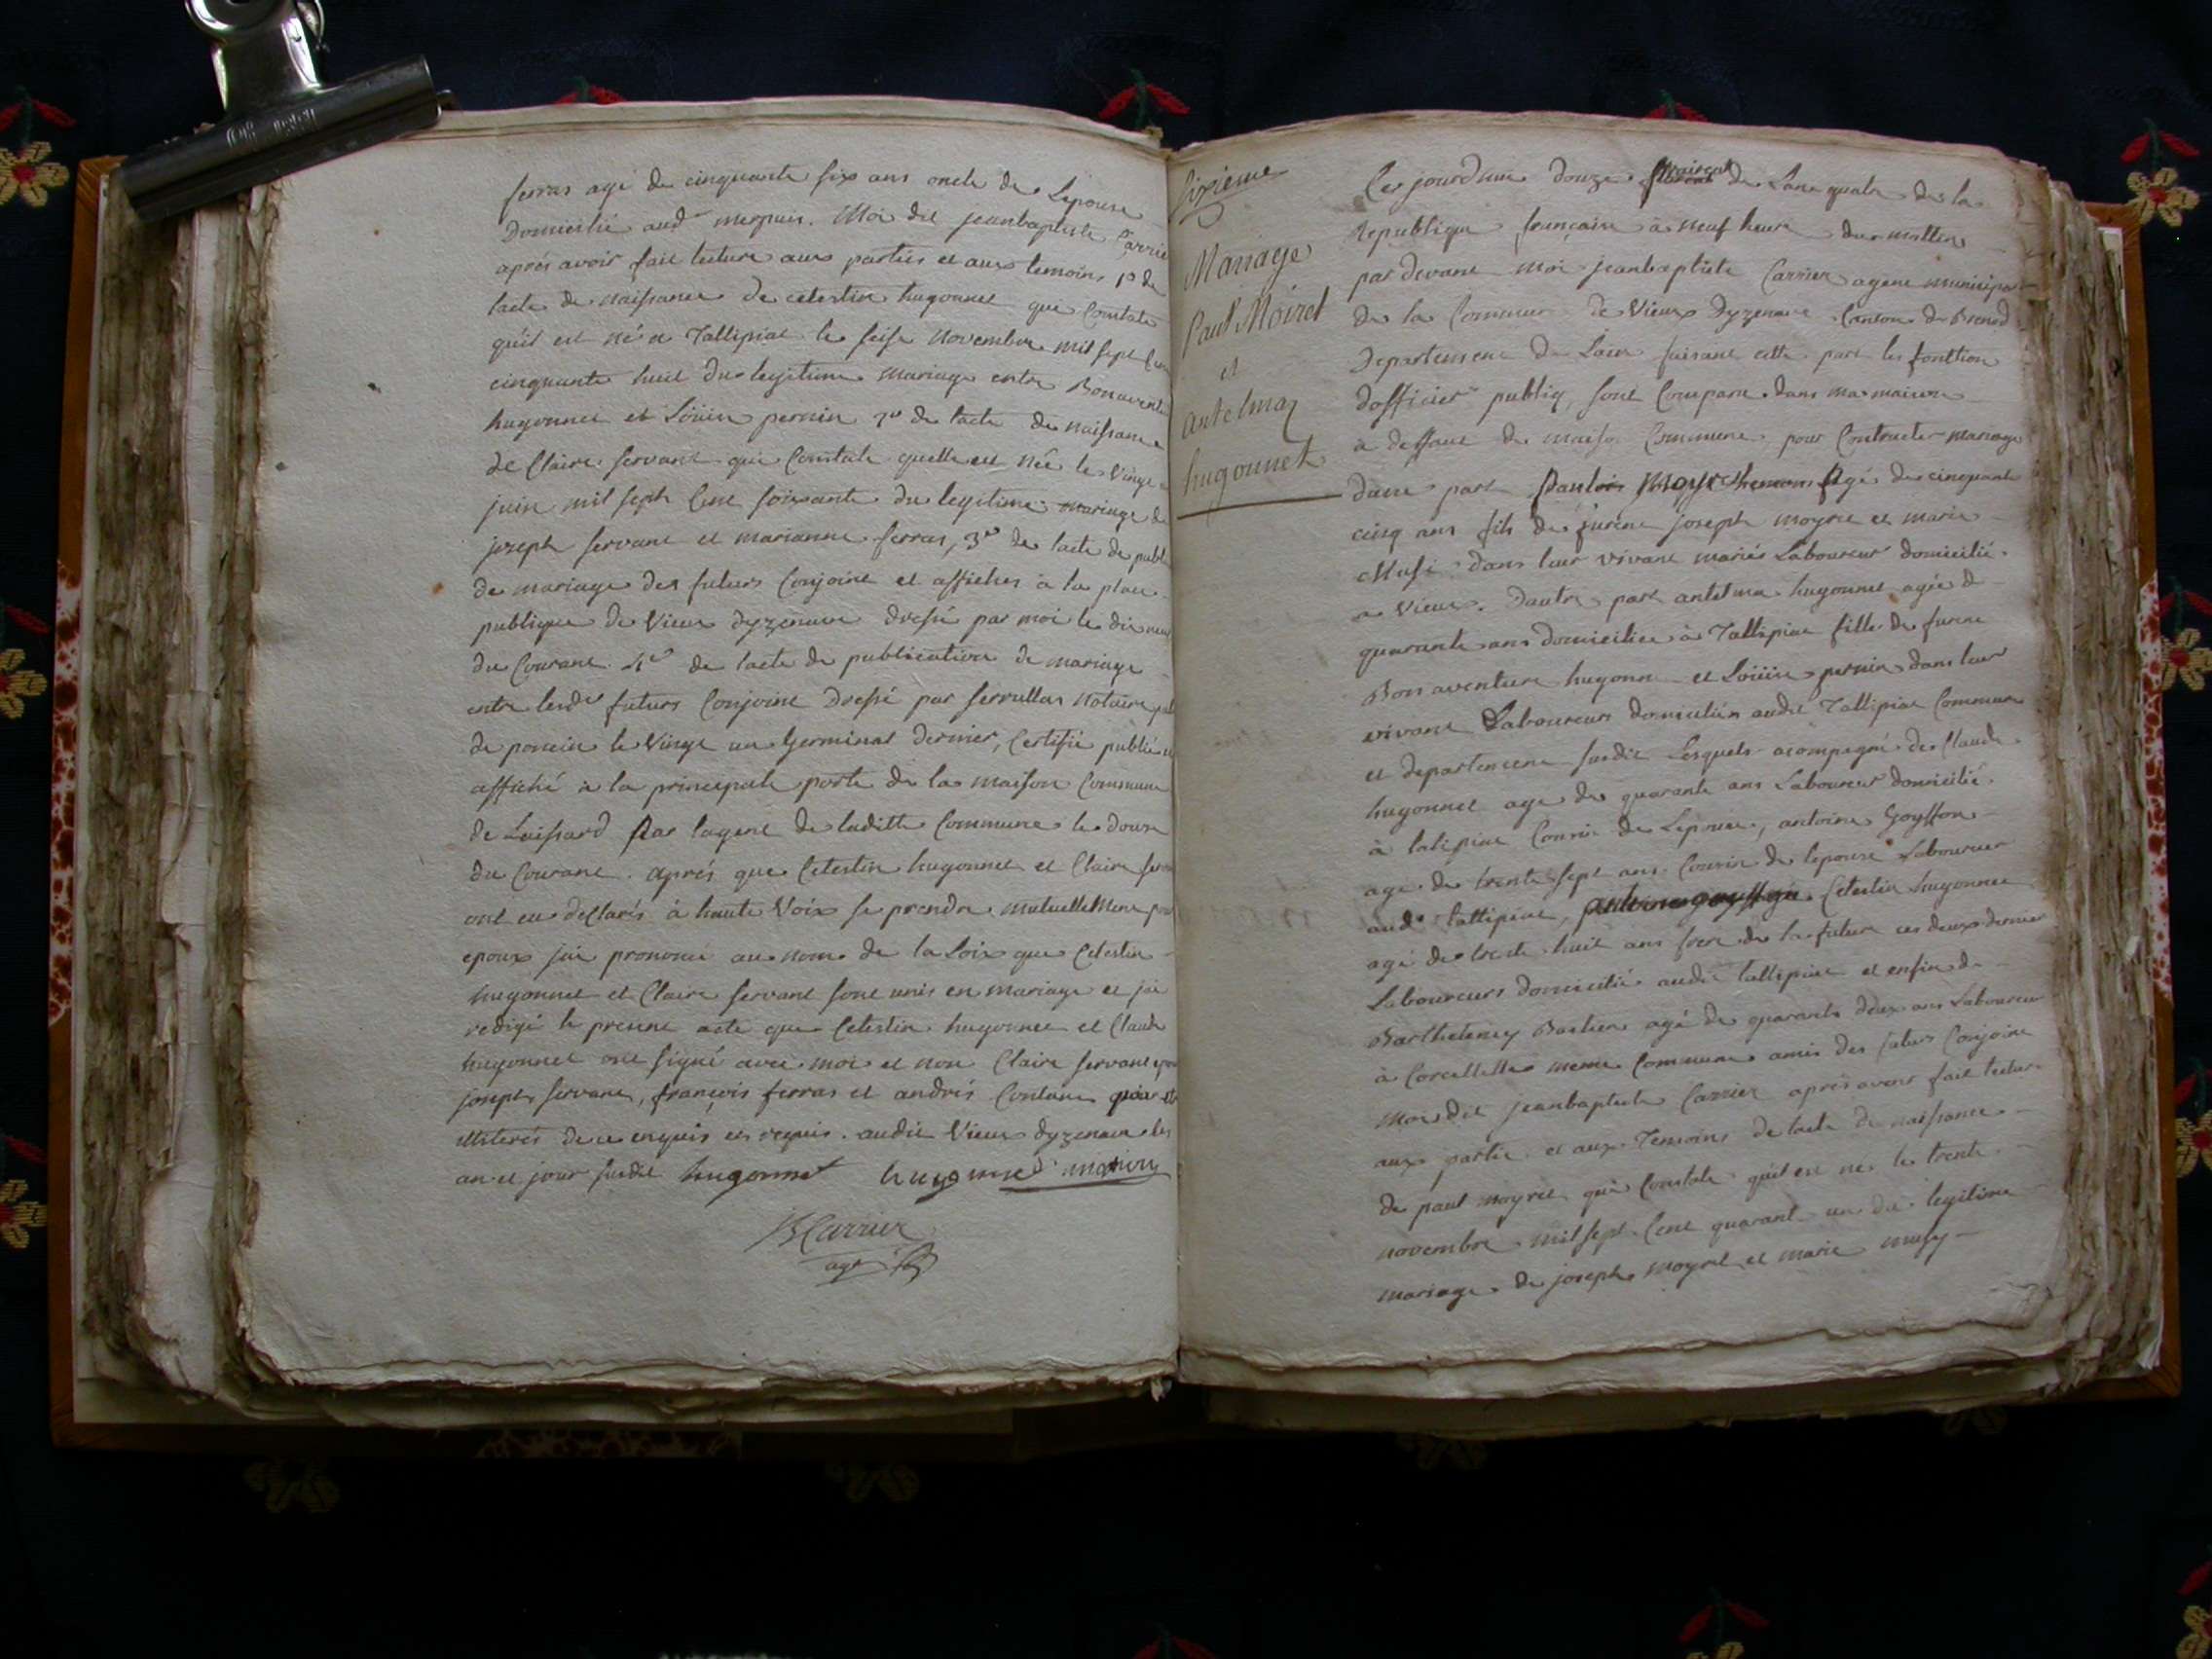 ferras agé de cinquante six ans oncle de Lepouse
Domicilié aud merpuis. Moi dit jeanbaptiste Carrie
aprés avoir fait lecture aux parties et aux temoins 1º de
lacte de naissance de celestin hugonnet qui Constate
quil est né a Tallipiat le seise novembre mil sept Cen
cinquante huit du legitime mariage entre Bonaventu
hugonnet et Loüise pernin 2º de lacte de naissance
de Claire servant qui Constate quelle est née le Vingt
juin mil sept Cent soixante du legitime mariage de
joseph servant et marianne ferras, 3º de lacte de publi
de mariage des futurs Conjoint et affiches à la place
publique de Vieux dyzenave dressé par moi le dix neuf
du Courant. 4º de lacte de publication de mariage
entre lesd futurs Conjoint Dressé par servullas notaire pub
de poncin le Vingt un Germinal dernier, Certifié publié et
affiché à la principale porte de la maison Commune
de Leissard Par lagent de laditte Commune le douze
du Courant. aprés que Celestin hugonnet et Claire serv
ont eu desclarés à haute Voix se prendre mutuellement pour
epoux jai prononcé au nom de la Loix que Celestin
hugonnet et Claire servant sont unis en mariage et jai
redigé le presant acte que Celestin hugonnet et Claude
hugonnet ont signé avec moi et non Claire servant
joseph servant, françois ferras et andrés
illiterés de ce enquis et requis. audit Vieux dyzenave les
an et jour susdit hugonnet hugonnet
JB Carrier
agt
Sixieme
Mariage
Paul Moiret
et
antelmaz
hugonnet
Cejourdhui douze prairéal de Lane quatre de la
republique française à neuf heure du mattin
par devant moi jeanbaptiste Carrier agent municipal
de la Commune de Vieux dyzenave Canton de Brenod
Departement de Lain faisant cette part les fonttion
dofficier publiq, sont Comparu dans ma maison
à deffaut de maison Commune pour Contracter mariage
dune part Agé de cinquante
cinq ans fils de furent joseph moyret et marie
Musi dans leur vivant mariés Laboureur domicilié
a Vieux. Dautre part antelma hugonnet agée de
quarante ans domiciliée à Tallipiat fille de furent
Bonaventure hugonnet et Loüise pernin dans leur
vivant Laboureurs domiciliés audit Tallipiat Commune
et departement susdit Lesquels acompagné de Claude
hugonnet age de quarante ans Laboureur domicilié
à talipiat Cousin de Lepouse, antoine Goyffon
age de trente sept ans Cousin de lepouse Laboureur
aud tallipiat, Celestin hugonnet
agé de trente huit ans frere de la future ces deux dernier
Laboureurs domicilié audit tallipiat et enfin de
Barthelemy Bastien agé de quarante deux ans Laboureur
à Corcellette meme Commune amis des futurs Conjoint
moi dit jeanbaptiste Carrier aprés avoir fait lecture
aux partie et aux Temoins de lacte de naissance
de paul moyret qui Constate quil est né le trente
novembre mil sept Cent quarant un du legitime
mariage de joseph moyret et marie musy